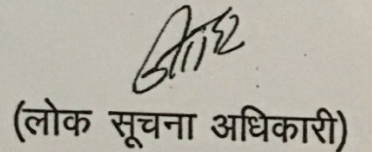 (लोक सूचना अधिकारी)